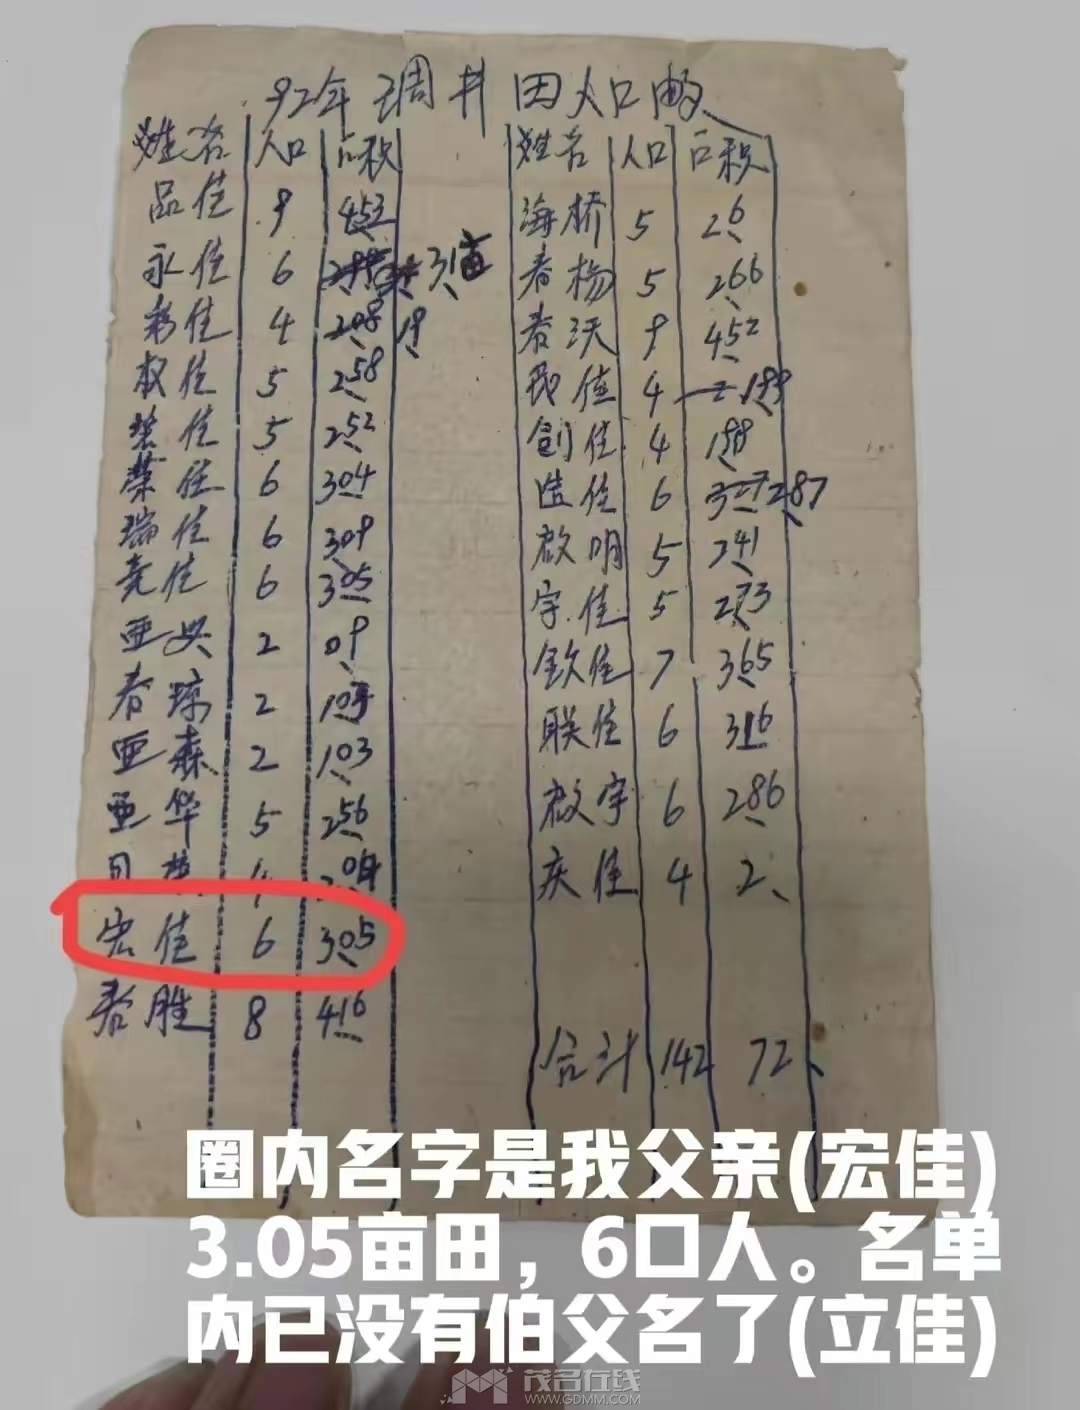 92年调井田人口亩
姓名 人口 面积
品佳 9 4.53
永佳 6 3.1亩
4 2.08 19
权佳 5 2.58
碧佳 5 2.52
荣佳 6 3.04
瑞佳 6 3.09
亮佳 6 3.05
亚兴 2 09
春琼 2 1.03
亚森 2 1.03
亚华 5 2.56
4 2.04
宏佳 6 3.05
春胜 8 4.16
姓名 人口 面积
海桥 5 2.6
春杨 5 2.66
春沃 9 4.52
民佳 4 1.89
创佳 4 1.88
佳 6 3.27 2.87
啟明 5 2.41
宇佳 5 2.73
钦佳 7 3.65
联佳 6 3.16
啟宇 6 2.86
庆佳 4 2.
合计 142 72.
圈内名字是我父亲(宏佳)
3.05亩田，6口人。名单
内已没有伯父名了(立佳)
茂名在线
WWW.GDMM.COM